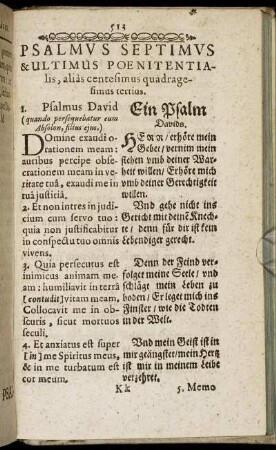 513
PSALMVS SEPTIMVS
& ULTIMUS POENITENTIA-
lis, aliàs centesimus quadrage-
simus tertius.
1. Psalmus David
(quando persequebatur eum
Absolon, filius ejus.)
DOmine exaudi o-
rationem meam:
auribus percipe obse-
crationem meam in ve-
ritate tuâ, exaudi me in
tuâ justitiâ.
2. Et non intres in judi-
cium cum servo tuo:
quia non justificabitur
in conspectu tuo omnis
vivens.
3. Quia persecutus est
inimicus animam me-
am: humiliavit in terrâ
[contudit] vitam meam,
Collocavit me in ob-
scuris, sicut mortuos
seculi.
4. Et anxiatus est super
[in] me Spiritus meus,
& in me turbatum est
cor meum.
Ein Psalm
Davids.
HErr / erhöre mein
Gebet / vernim mein
flehen vmb deiner War-
heit willen / Erhöre mich
vmb deiner Gerechtigkeit
willen.
Vnd gehe nicht ins
Gericht mit deinē Knech-
te / denn für dir ist kein
Lebendiger gerecht.
Denn der Feind ver-
folget meine Seele / vnd
schlägt mein Leben zu
boden / Er leget mich ins
Finster / wie die Todten
in der Welt.
Vnd mein Geist ist in
mir geängstet / mein Hertz
ist mir in meinem Leibe
verzehret.
Kk
5. Memo